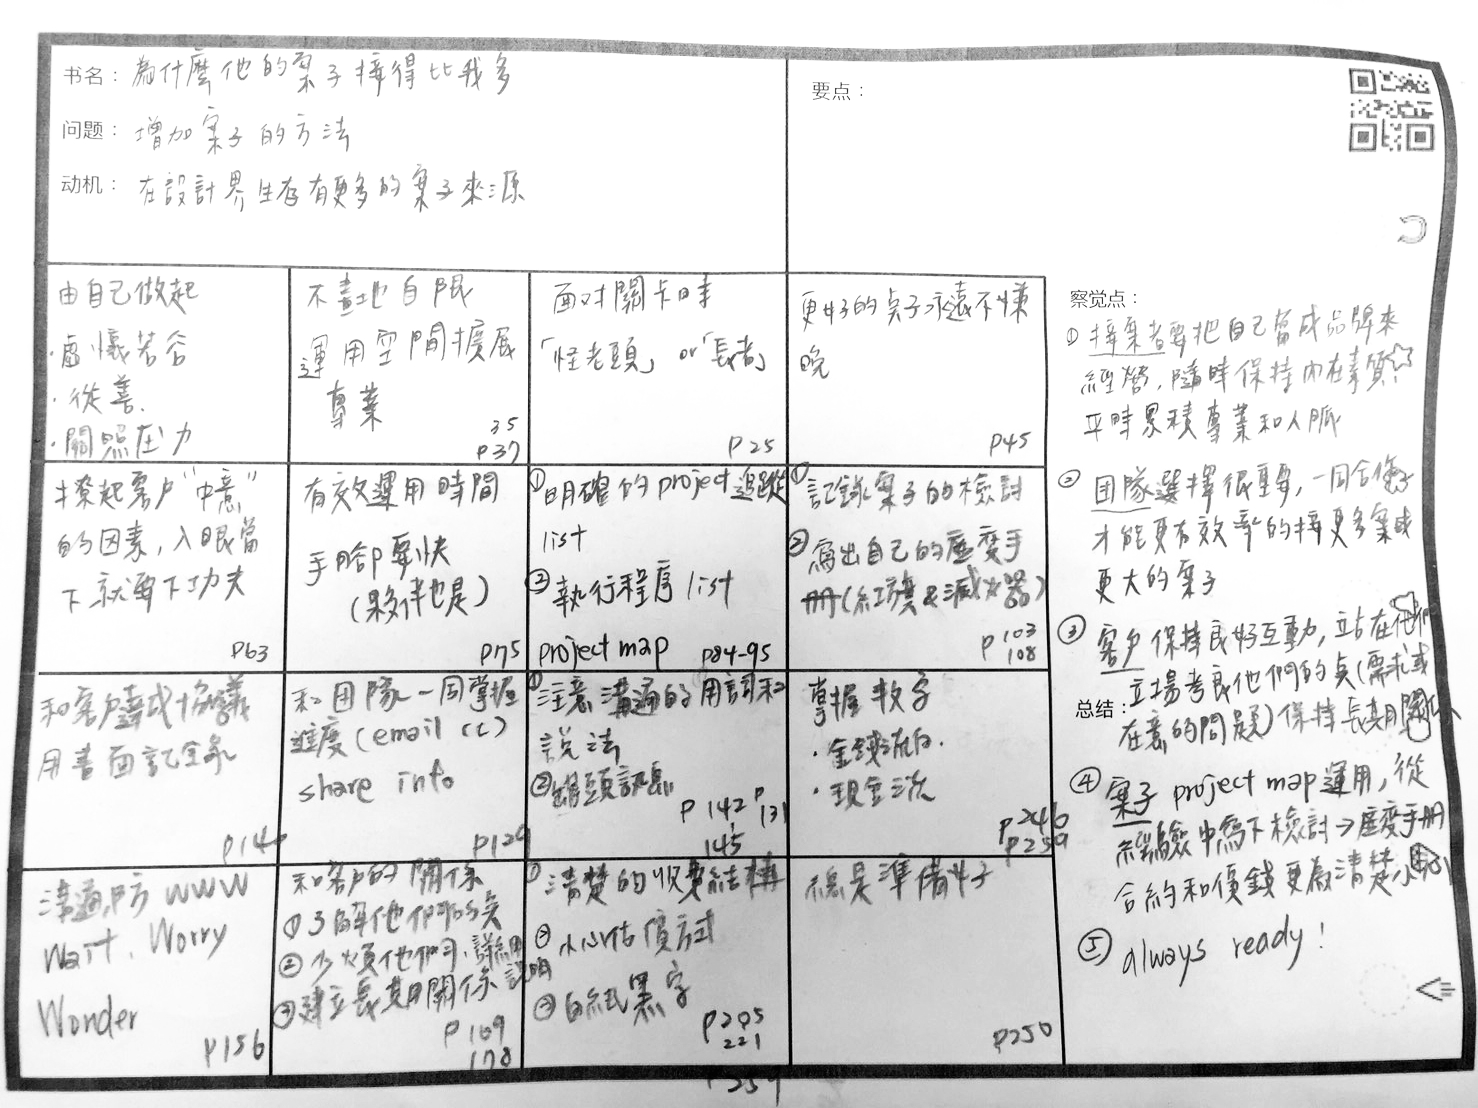 书名： 為什麼他的案子接得比我多
问题： 增加案子的方法
动机： 在設計界生存有更多的案子來源
要点：
由自己做起
·虛懷若谷
·從善
·關照压力
不畫地自限
運用空間擴展
專業
35
P37
面对關卡時
「怪老頭」or「長者」
P25
更好的点子永遠不嫌
晚
P45
撩起客户"中意"
的因素，入眼當
下就要下功夫
P63
有效運用時間
手腳要快
(夥伴也是)
P75
①明確的project追蹤
list
②執行程序list
project map P84-95
①記錄案子的檢討
②寫出自己的應變手
冊(紅旗&滅火器)
P 103
108
和客户達成協議
用書面記錄
P14
和團隊一同掌握
進度(email cc)
share info
P129
①注意溝通的用詞和
說法
②罐頭訊息
P 142 P 131
145
掌握数字
·金錢流向.
·現金流
P246
P259
溝通防WWW
Wait. Worry
Wonder
P156
和客户的關係
①了解他們的点
②少煩他們.詳細說明
③建立長期關係
P 169
178
①清楚的收費結構
②小心估價方式
③白紙黑字
P205
221
總是準備好
P250
259
察觉点：
①接案者要把自己當成品牌來
經營，隨時保持内在素質☆
平時累積專業和人脈
②团隊選擇很重要，一同合作
才能更有效率的接更多案或
更大的案子
③客户保持良好互動，站在他們
立場考慮他們的点(需求或
总结：
在意的問題)保持長期關係
④案子project map運用，從
經驗中寫下檢討→應变手册
合約和價錢更為清楚小心
⑤always ready!